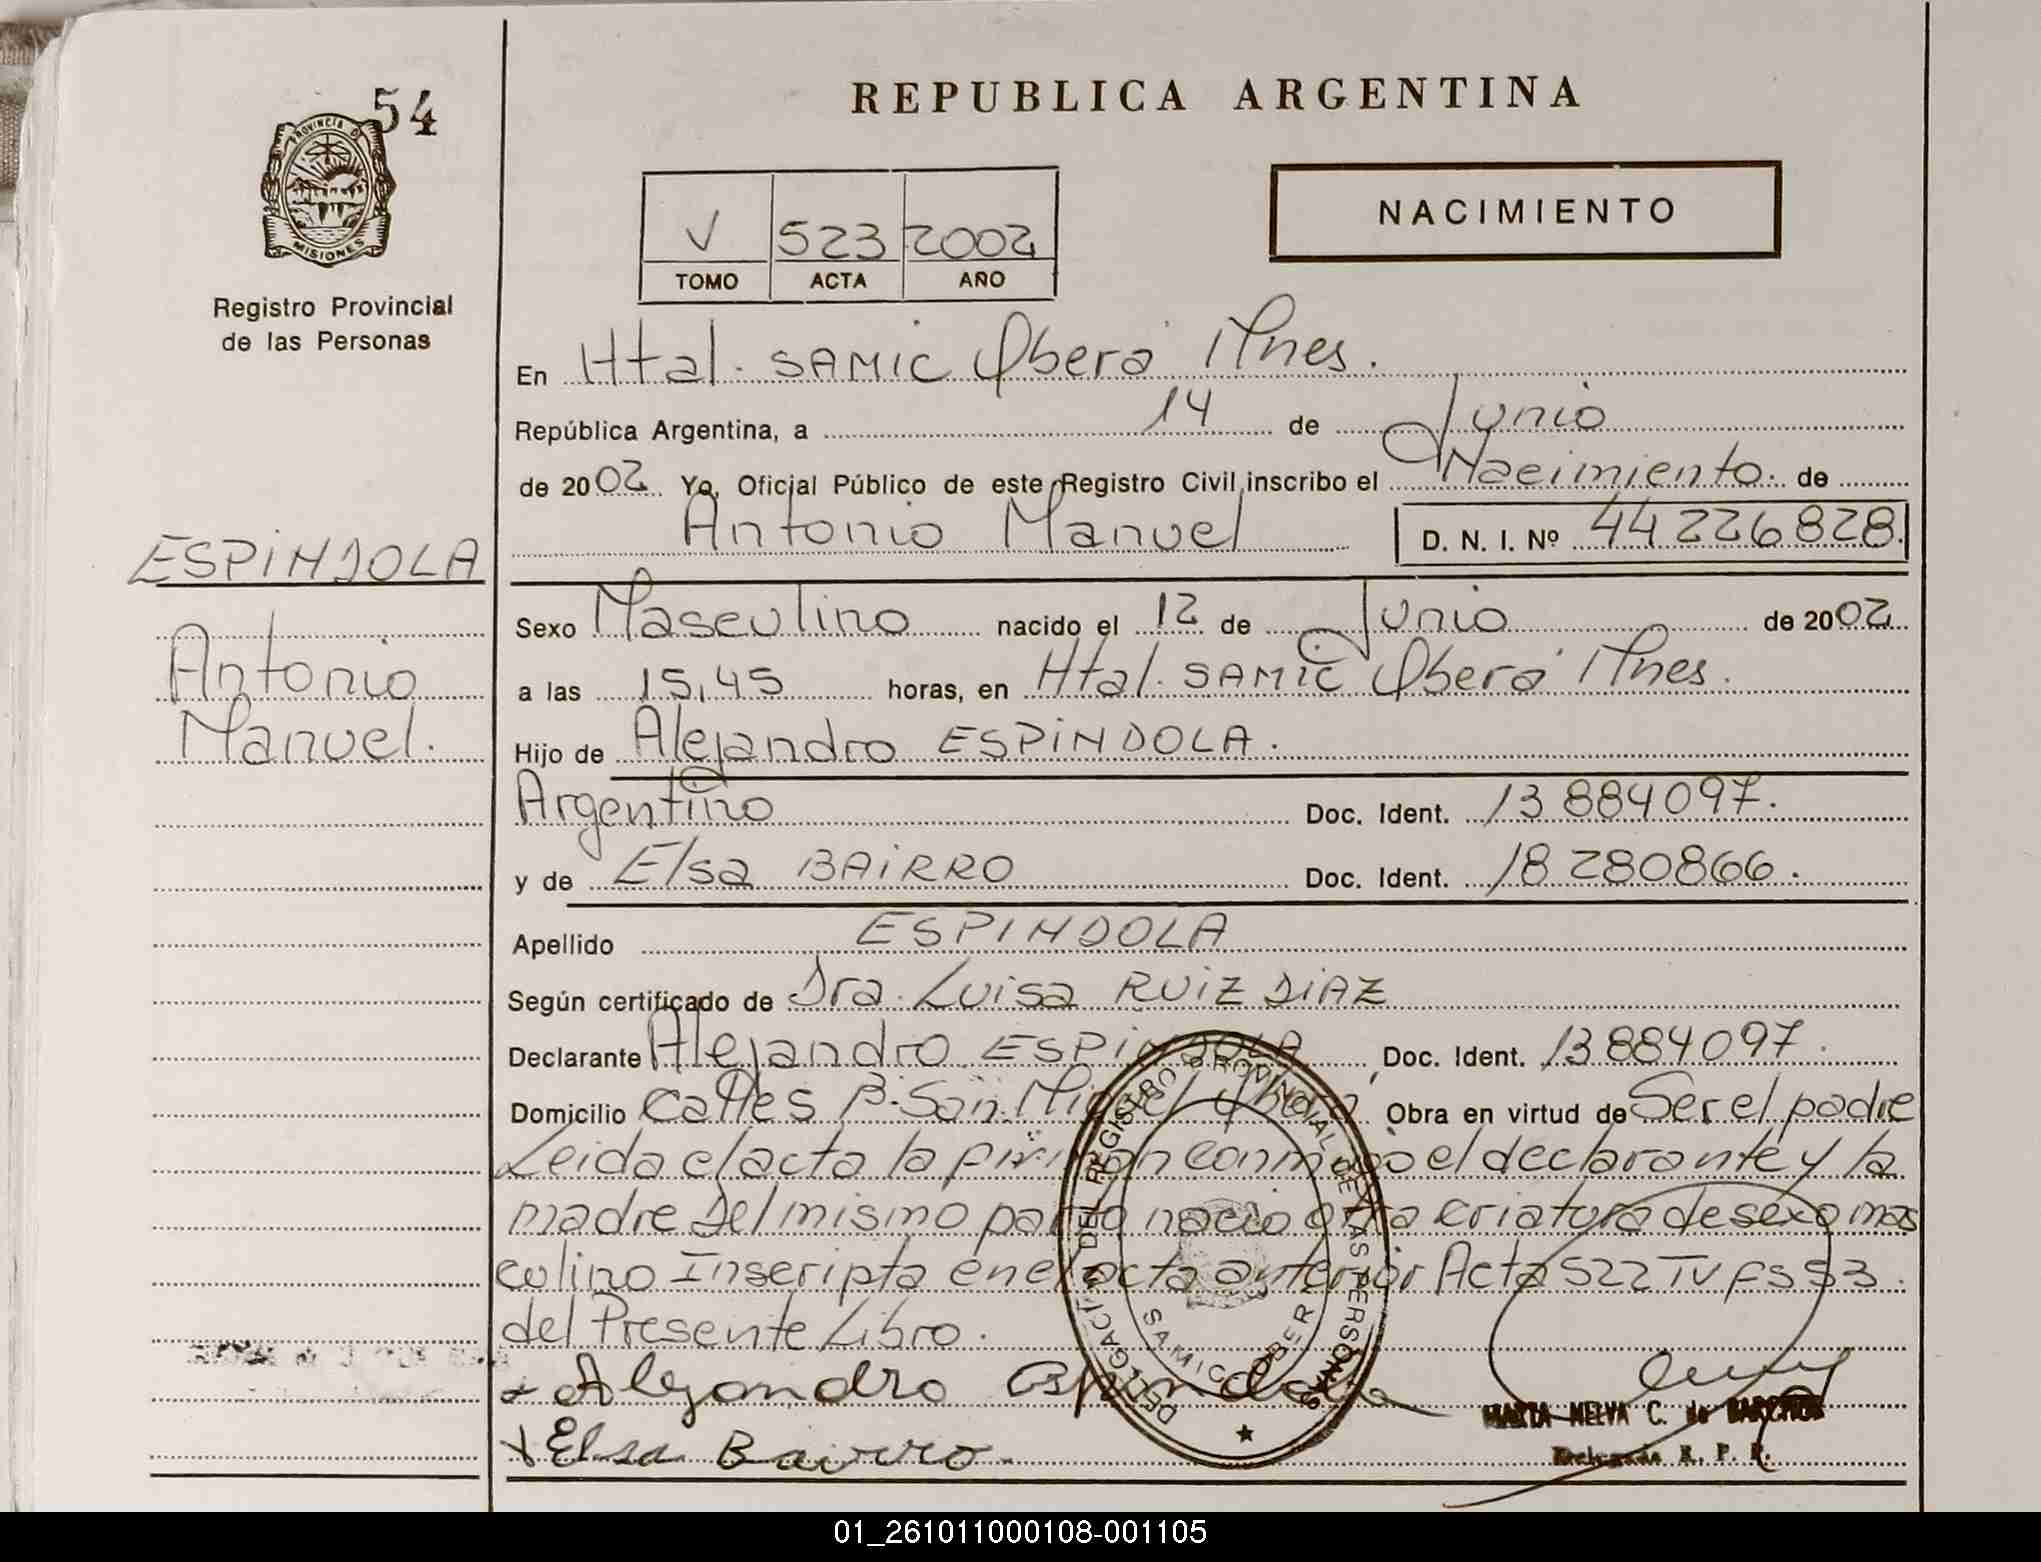 54
PROVINCIA DE
MISIONES
Registro Provincial
de las Personas
REPUBLICA ARGENTINA
V 523 2002
TOMO ACTA AÑO
NACIMIENTO
En Htal. SAMIC Oberá Mnes.
República Argentina, a 14 de Junio
de 2002 Yo, Oficial Público de este Registro Civil inscribo el Nacimiento de
Antonio Manuel D. N. I. Nº 44226828
ESPINDOLA
Antonio
Manuel.
Sexo Masculino nacido el 12 de Junio de 2002
a las 15,45 horas, en Htal. SAMIC Oberá Mnes.
Hijo de Alejandro ESPINDOLA.
Argentino Doc. Ident. 13884097.
y de Elsa BAIRRO Doc. Ident. 18280866.
Apellido ESPINDOLA
Según certificado de Dra. Luisa RUIZ DIAZ
Declarante Alejandro ESPINDOLA Doc. Ident. 13884097.
Domicilio Calles B. San Miguel Oberá, Obra en virtud de Ser el padre
Leida el acta la firman conmigo el declarante y la
madre Del mismo parto nacio otra criatura de sexo mas
culino Inscripta en el acta anterior Acta 522 TV Fs 53.
del Presente Libro.
Alejandro Espindola
Elsa Bairro.
DELEGACIÓN DEL REGISTRO PROVINCIAL DE LAS PERSONAS
SAMIC OBER
MARTA NELVA C. de
Delegada R. P. P.
01_261011000108-001105